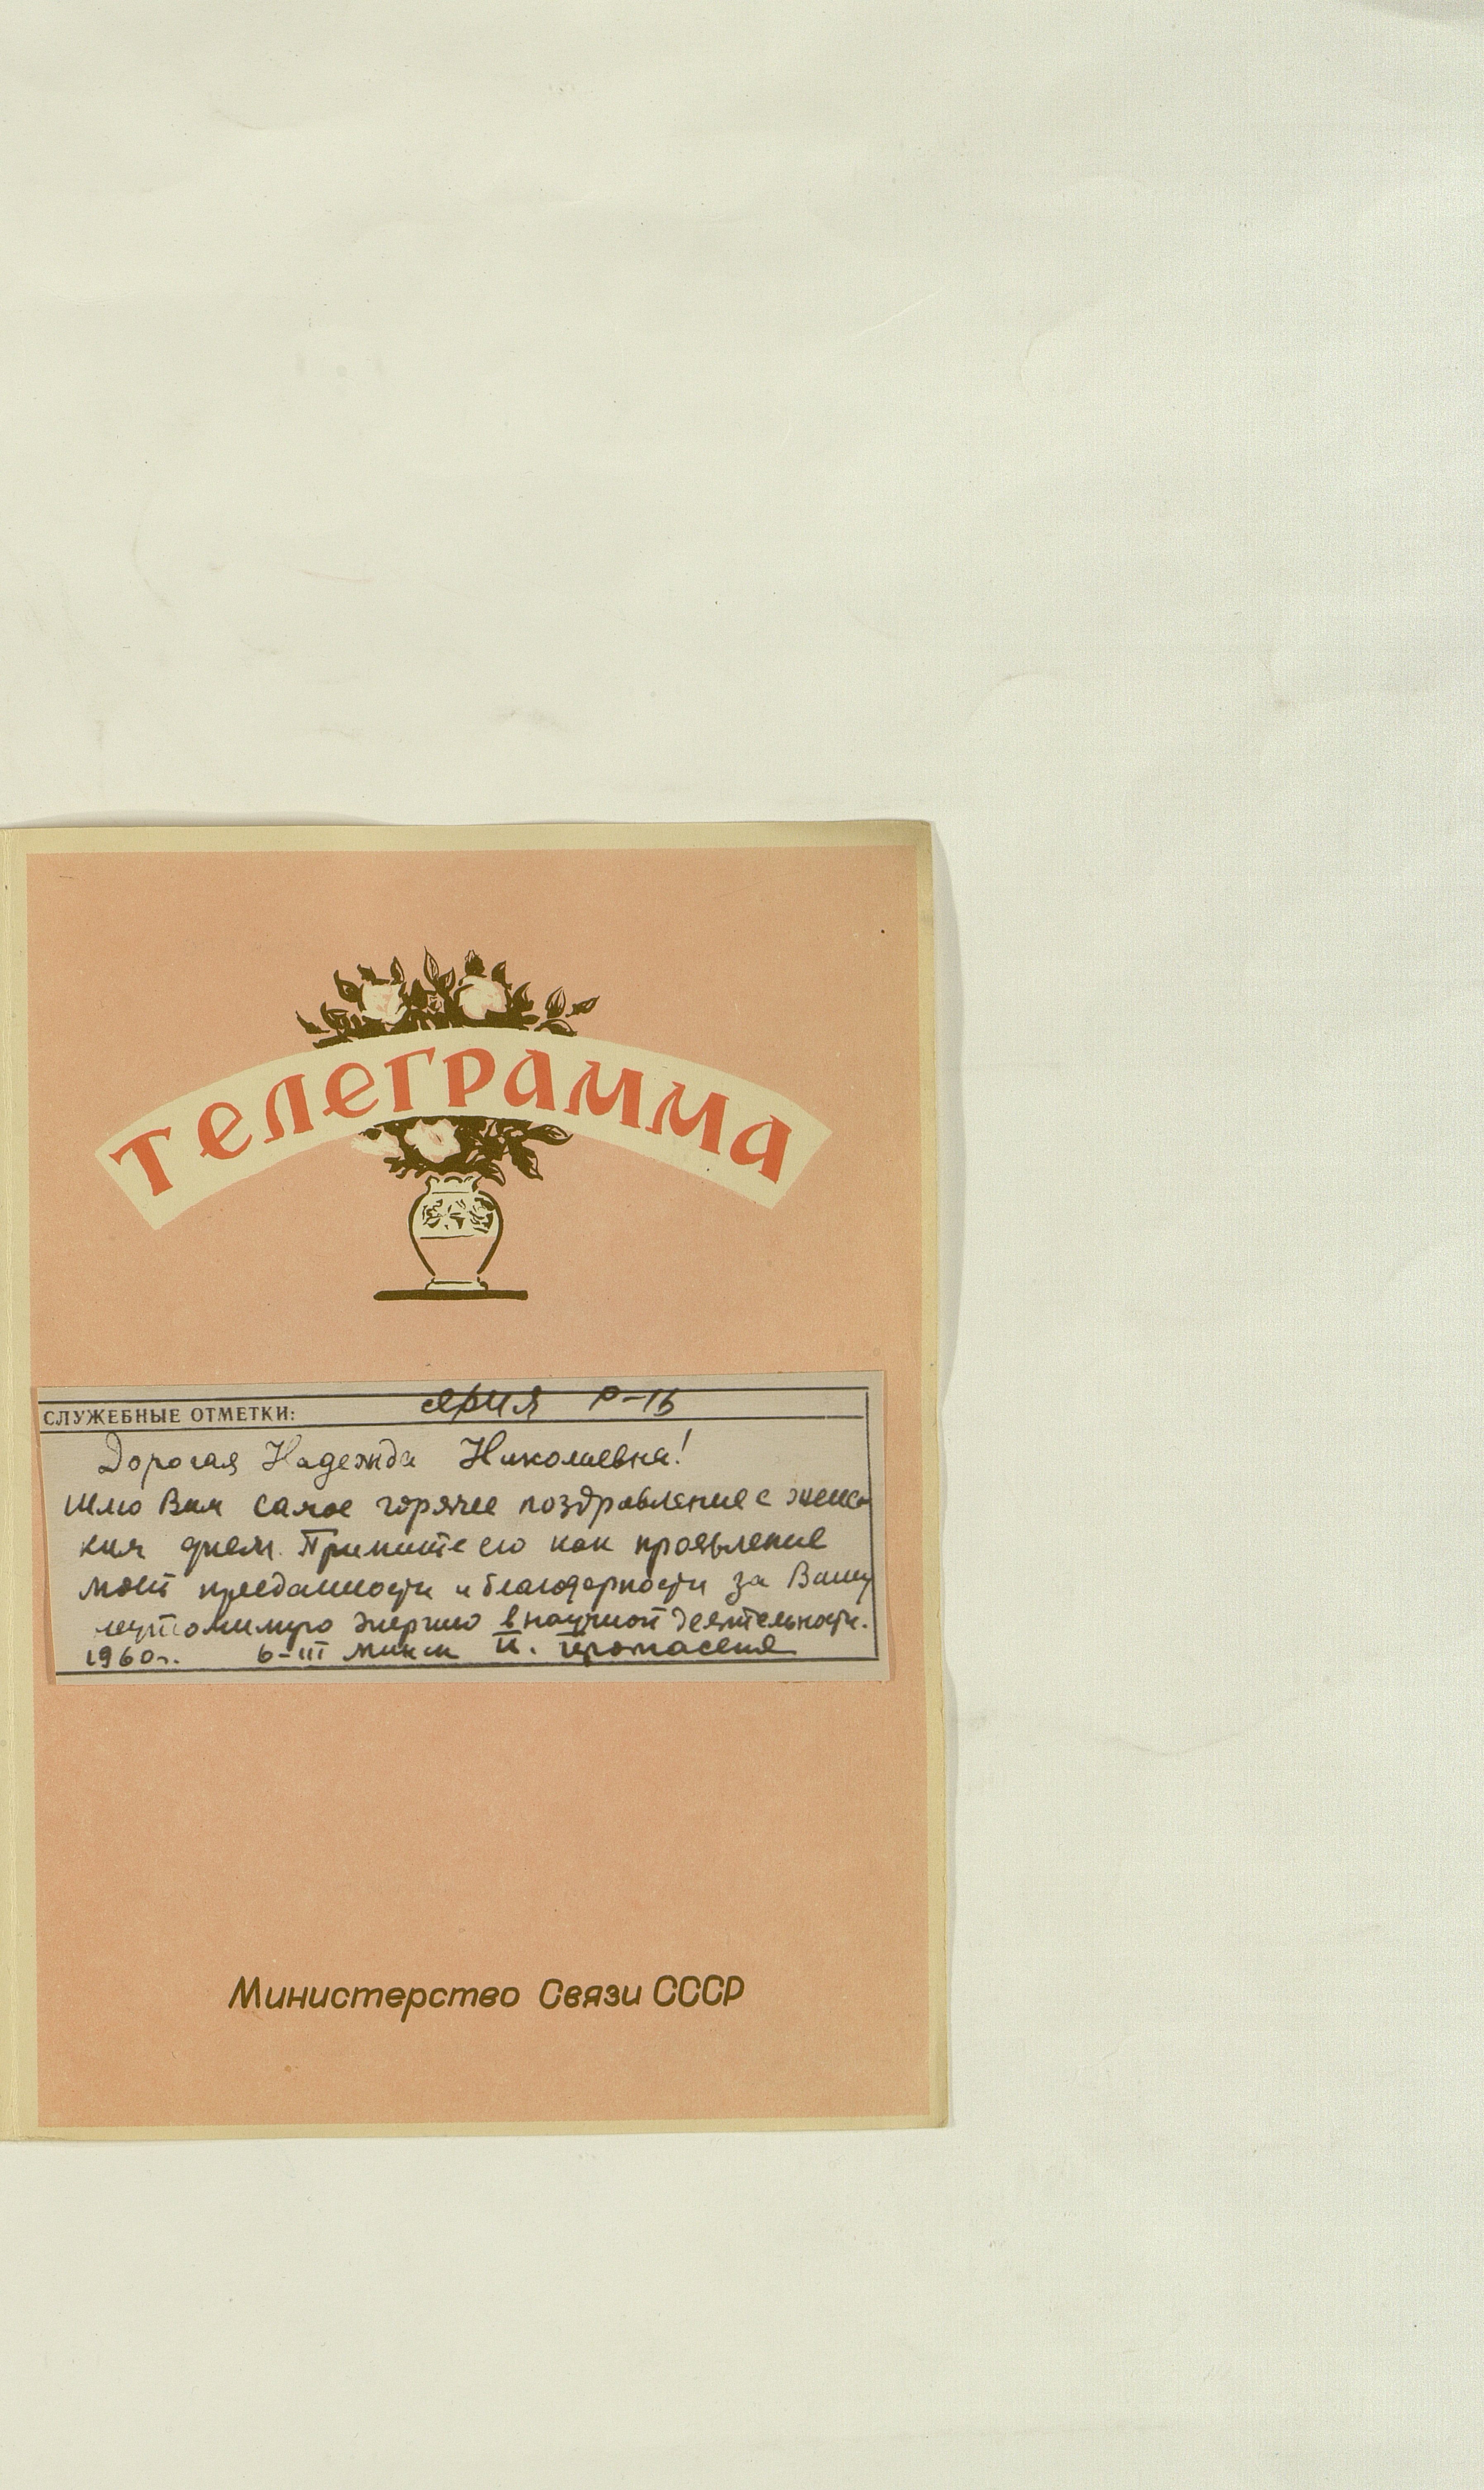 ТЕЛЕГРАММА
СЛУЖЕБНЫЕ ОТМЕТКИ:
Дорогая Надежда Николаевна!
Шлю Вам самое горячее поздравление с женс
ким днем. Примите его как проявление
моей преданности и благодарности за Вашу
неутомимую энергию в научной деятельности.
1960г. 6-III Минск И. Протасеня
Министерство Связи СССР